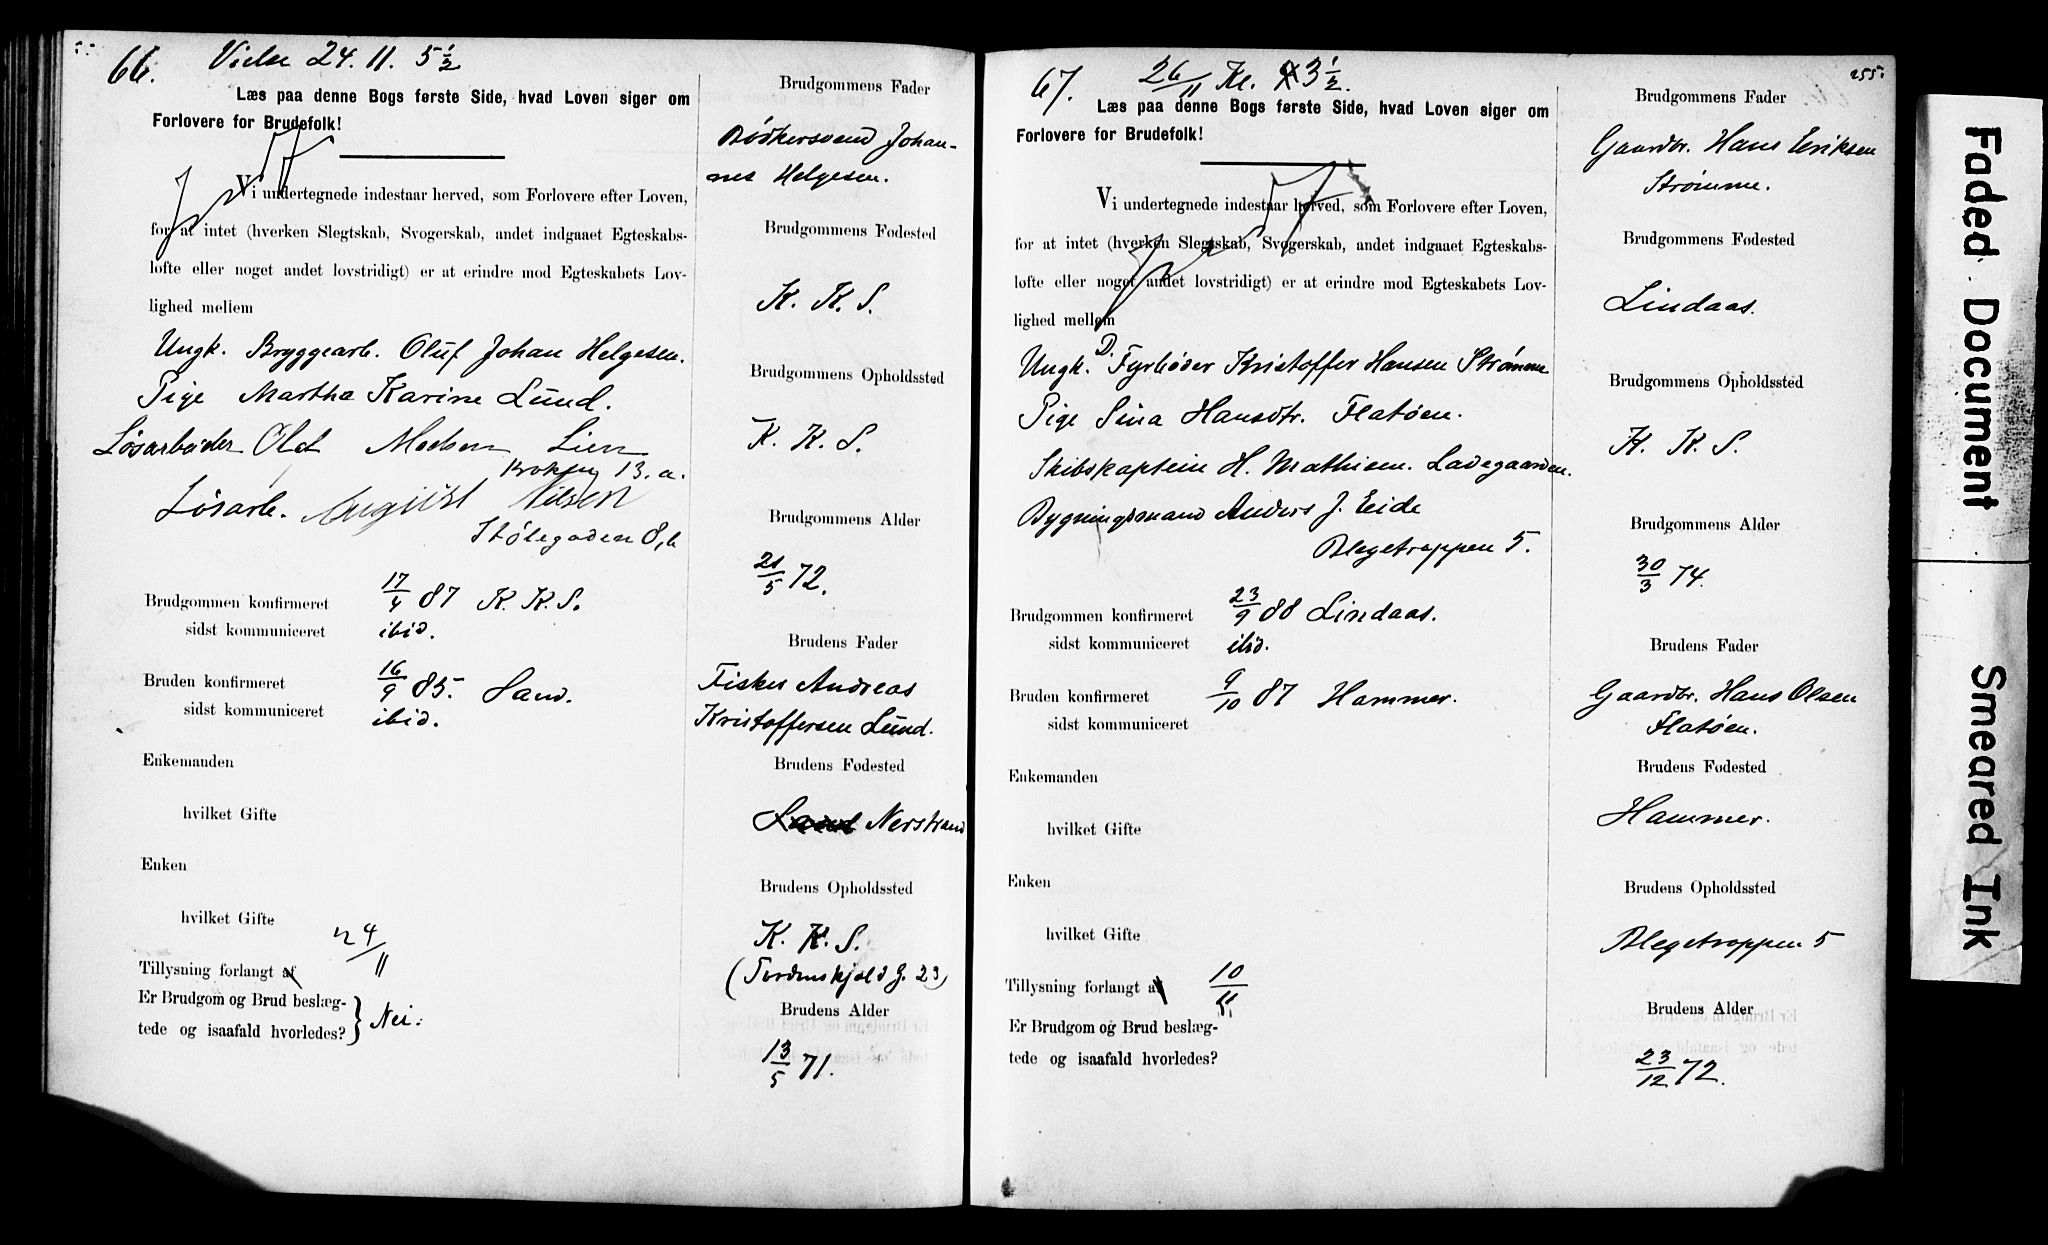 66. Vielse 24. 11. 5 1/2
Læs paa denne Bogs første Side, hvad Loven siger om
Forlovere for Brudefolk!
Vi undertegnede indestaar herved, som Forlovere efter Loven,
for at intet (hverken Slegtskab, Svogerskab, andet indgaaet Egteskabs-
løfte eller noget andet lovstridigt) er at erindre mod Egteskabets Lov-
lighed mellem
Ungk. Bryggearb. Oluf Johan Helgesen.
Pige Martha Karine Lund.
Løsarbeider Olat Madsen Lien
13. a.
Løsarb. August Nilsen
Stølegaden 8, b
Brudgommen konfirmeret 17/4 87 K. K. S.
sidst kommuniceret ibid.
Bruden konfirmeret 16/9 85. Sand.
sidst kommuniceret ibid.
Enkemanden
hvilket Gifte
Enken
hvilket Gifte
Tillysning forlangt af 4/11
Er Brudgom og Brud beslæg-
tede og isaafald hvorledes? } Nei.
Brudgommens Fader
Bødkersvend Johan-
nes Helgesen.
Brudgommens Fødested
K. K. S.
Brudgommens Opholdssted
K. K. S.
Brudgommens Alder
21/5 72.
Brudens Fader
Fisker Andreas
Kristoffersen Lund.
Brudens Fødested
Nerstrand
Brudens Opholdssted
K. K. S.
(Tordenskjold G. 23)
Brudens Alder
13/5 71.
67. 26/11 Kl. 3 1/2.
255.
Læs paa denne Bogs første Side, hvad Loven siger om
Forlovere for Brudefolk!
Vi undertegnede indestaar herved, som Forlovere efter Loven,
for at intet (hverken Slegtskab, Svogerskab, andet indgaaet Egteskabs-
løfte eller noget andet lovstridigt) er at erindre mod Egteskabets Lov-
lighed mellem
Ungk. D. Fyrbøder Kristoffer Hansen Strømme
Pige Sina Hansdtr. Flatøen.
Skibskaptein H. Mathisen. Ladegaarden.
Bygningsmand Anders J. Eide
Blegetrappen 5.
Brudgommen konfirmeret 23/9 88 Lindaas.
sidst kommuniceret ibid.
Bruden konfirmeret 9/10 87 Hammer.
sidst kommuniceret
Enkemanden
hvilket Gifte
Enken
hvilket Gifte
Tillysning forlangt af 10/11
Er Brudgom og Brud beslæg-
tede og isaafald hvorledes?
Brudgommens Fader
Gaardbr. Hans Eriksen
Strømme.
Brudgommens Fødested
Lindaas.
Brudgommens Opholdssted
K. K. S.
Brudgommens Alder
30/3 74.
Brudens Fader
Gaardbr. Hans Olsen
Flatøen.
Brudens Fødested
Hammer.
Brudens Opholdssted
Blegetrappen 5
Brudens Alder
23/12 72.
Faded Document
Smeared Ink